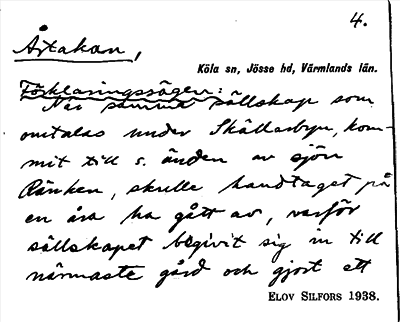 4.
Årtakan,
Köla sn, Jösse hd, Värmlands län.
Förklaringssägen:
När samma sällskap som
omtalas under Skållarbyn, kom-
mit till s. änden av sjön
Ränken, skulle handtaget på
en åra ha gått av, varför
sällskapet begivit sig in till
närmaste gård och gjort ett
ELOV SILFORS 1938.